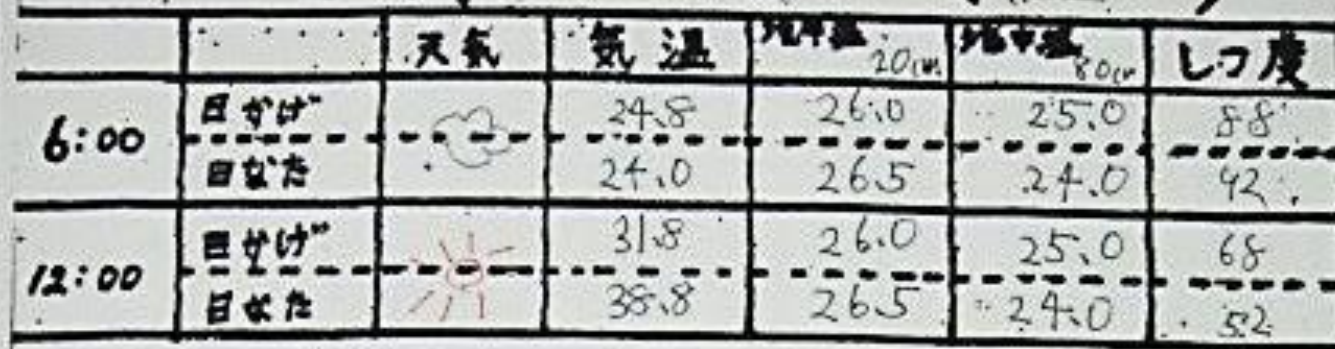 天気 気温 地中温 20cm 地中温 80cm しつ度
6:00 日かげ 24.8 26.0 25.0 88
日なた 24.0 26.5 24.0 92
12:00 日かげ 31.8 26.0 25.0 68
日なた 38.8 26.5 24.0 52